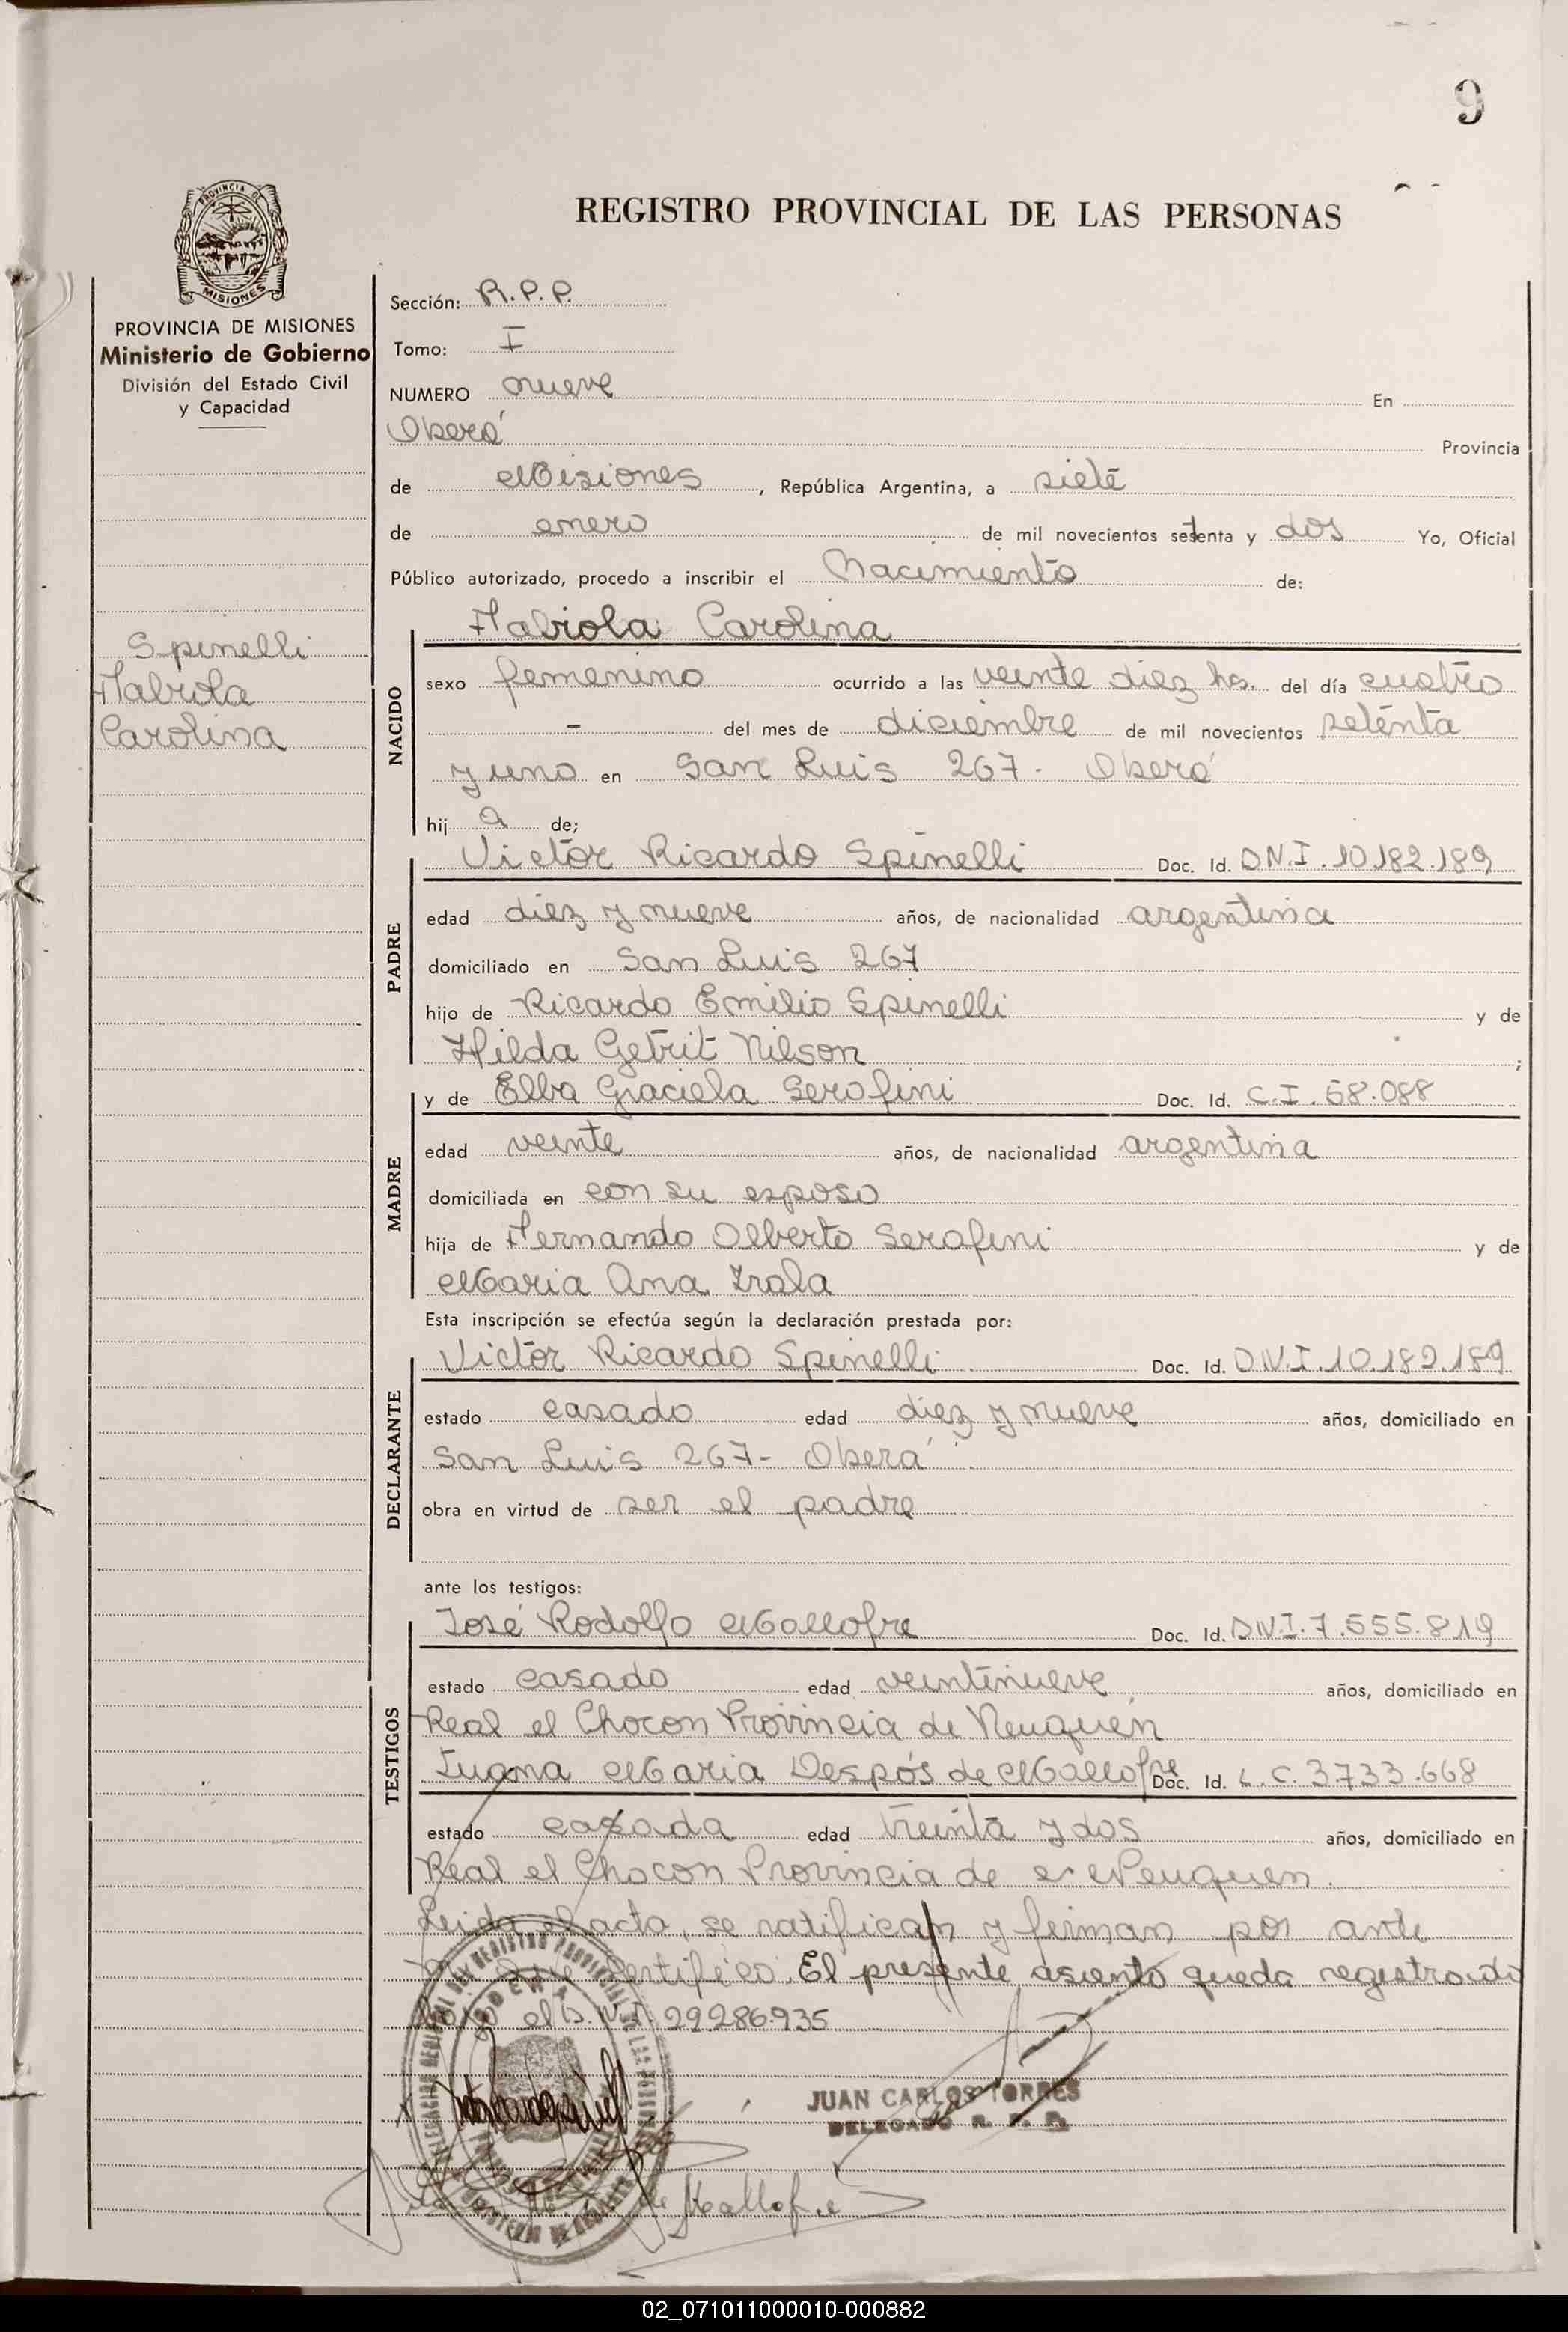 9
REGISTRO PROVINCIAL DE LAS PERSONAS
PROVINCIA DE MISIONES
Ministerio de Gobierno
División del Estado Civil
y Capacidad
Spinelli
Fabiola
Carolina
Sección: R.P.P.
Tomo: I
NUMERO nueve En
Oberá Provincia
de Misiones, República Argentina, a siete
de enero de mil novecientos setenta y dos Yo, Oficial
Público autorizado, procedo a inscribir el Nacimiento de:
NACIDO
Fabiola Carolina
sexo femenino ocurrido a las veinte diez hs. del día cuatro
- del mes de diciembre de mil novecientos setenta
y uno en San Luis 267- Oberá
hij a de;
PADRE
Victor Ricardo Spinelli Doc. Id. D.N.I. 10.182.189
edad diez y nueve años, de nacionalidad argentina
domiciliado en San Luis 267
hijo de Ricardo Emilio Spinelli y de
Hilda Getrit Nilson;
MADRE
y de Elba Graciela Serafini Doc. Id. C.I. 68.088
edad veinte años, de nacionalidad argentina
domiciliada en con su esposo
hija de Fernando Alberto Serafini y de
Maria Ana Irala
Esta inscripción se efectúa según la declaración prestada por:
DECLARANTE
Victor Ricardo Spinelli Doc. Id. D.N.I. 10.182.189
estado casado edad diez y nueve años, domiciliado en
San Luis 267- Oberá
obra en virtud de ser el padre
ante los testigos:
TESTIGOS
José Rodolfo Mallofre Doc. Id. D.N.I. 7.555.819
estado casado edad veintinueve años, domiciliado en
Real el Chocon Provincia de Neuquén
Juana Maria Despós de Mallofre Doc. Id. L.C. 3733.668
estado casada edad treinta y dos años, domiciliado en
Real el Chocon Provincia de Neuquen.
Leida el acta, se ratifican y firman por ante
que certifico. El presente asiento queda registrado
bajo el D.N.I. 22.286.935
JUAN CARLOS TORRES
DELEGADO R. P. P.
de Mallofre
02_071011000010-000882